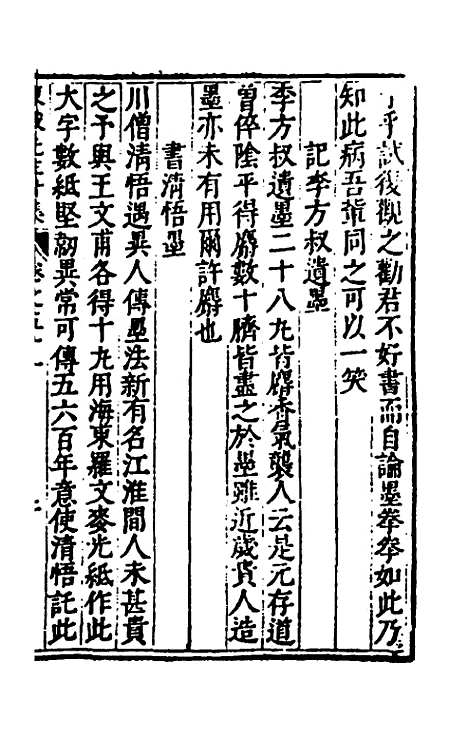 乎試復觀之勸君不好書而自論墨拳拳如此乃
知此病吾輩同之可以一笑
記李方叔遺墨
李方叔遺墨二十八丸皆麝香氣襲人云是元存道
曾倅陰平得麝數十臍皆盡之於墨雖近歲貴人造
墨亦未有用爾許麝也
書清悟墨
川僧清悟遇異人傳墨法新有名江淮間人未甚貴
之予與王文甫各得十丸用海東羅文麥光紙作此
大字數紙堅韌異常可傳五六百年意使清悟託此